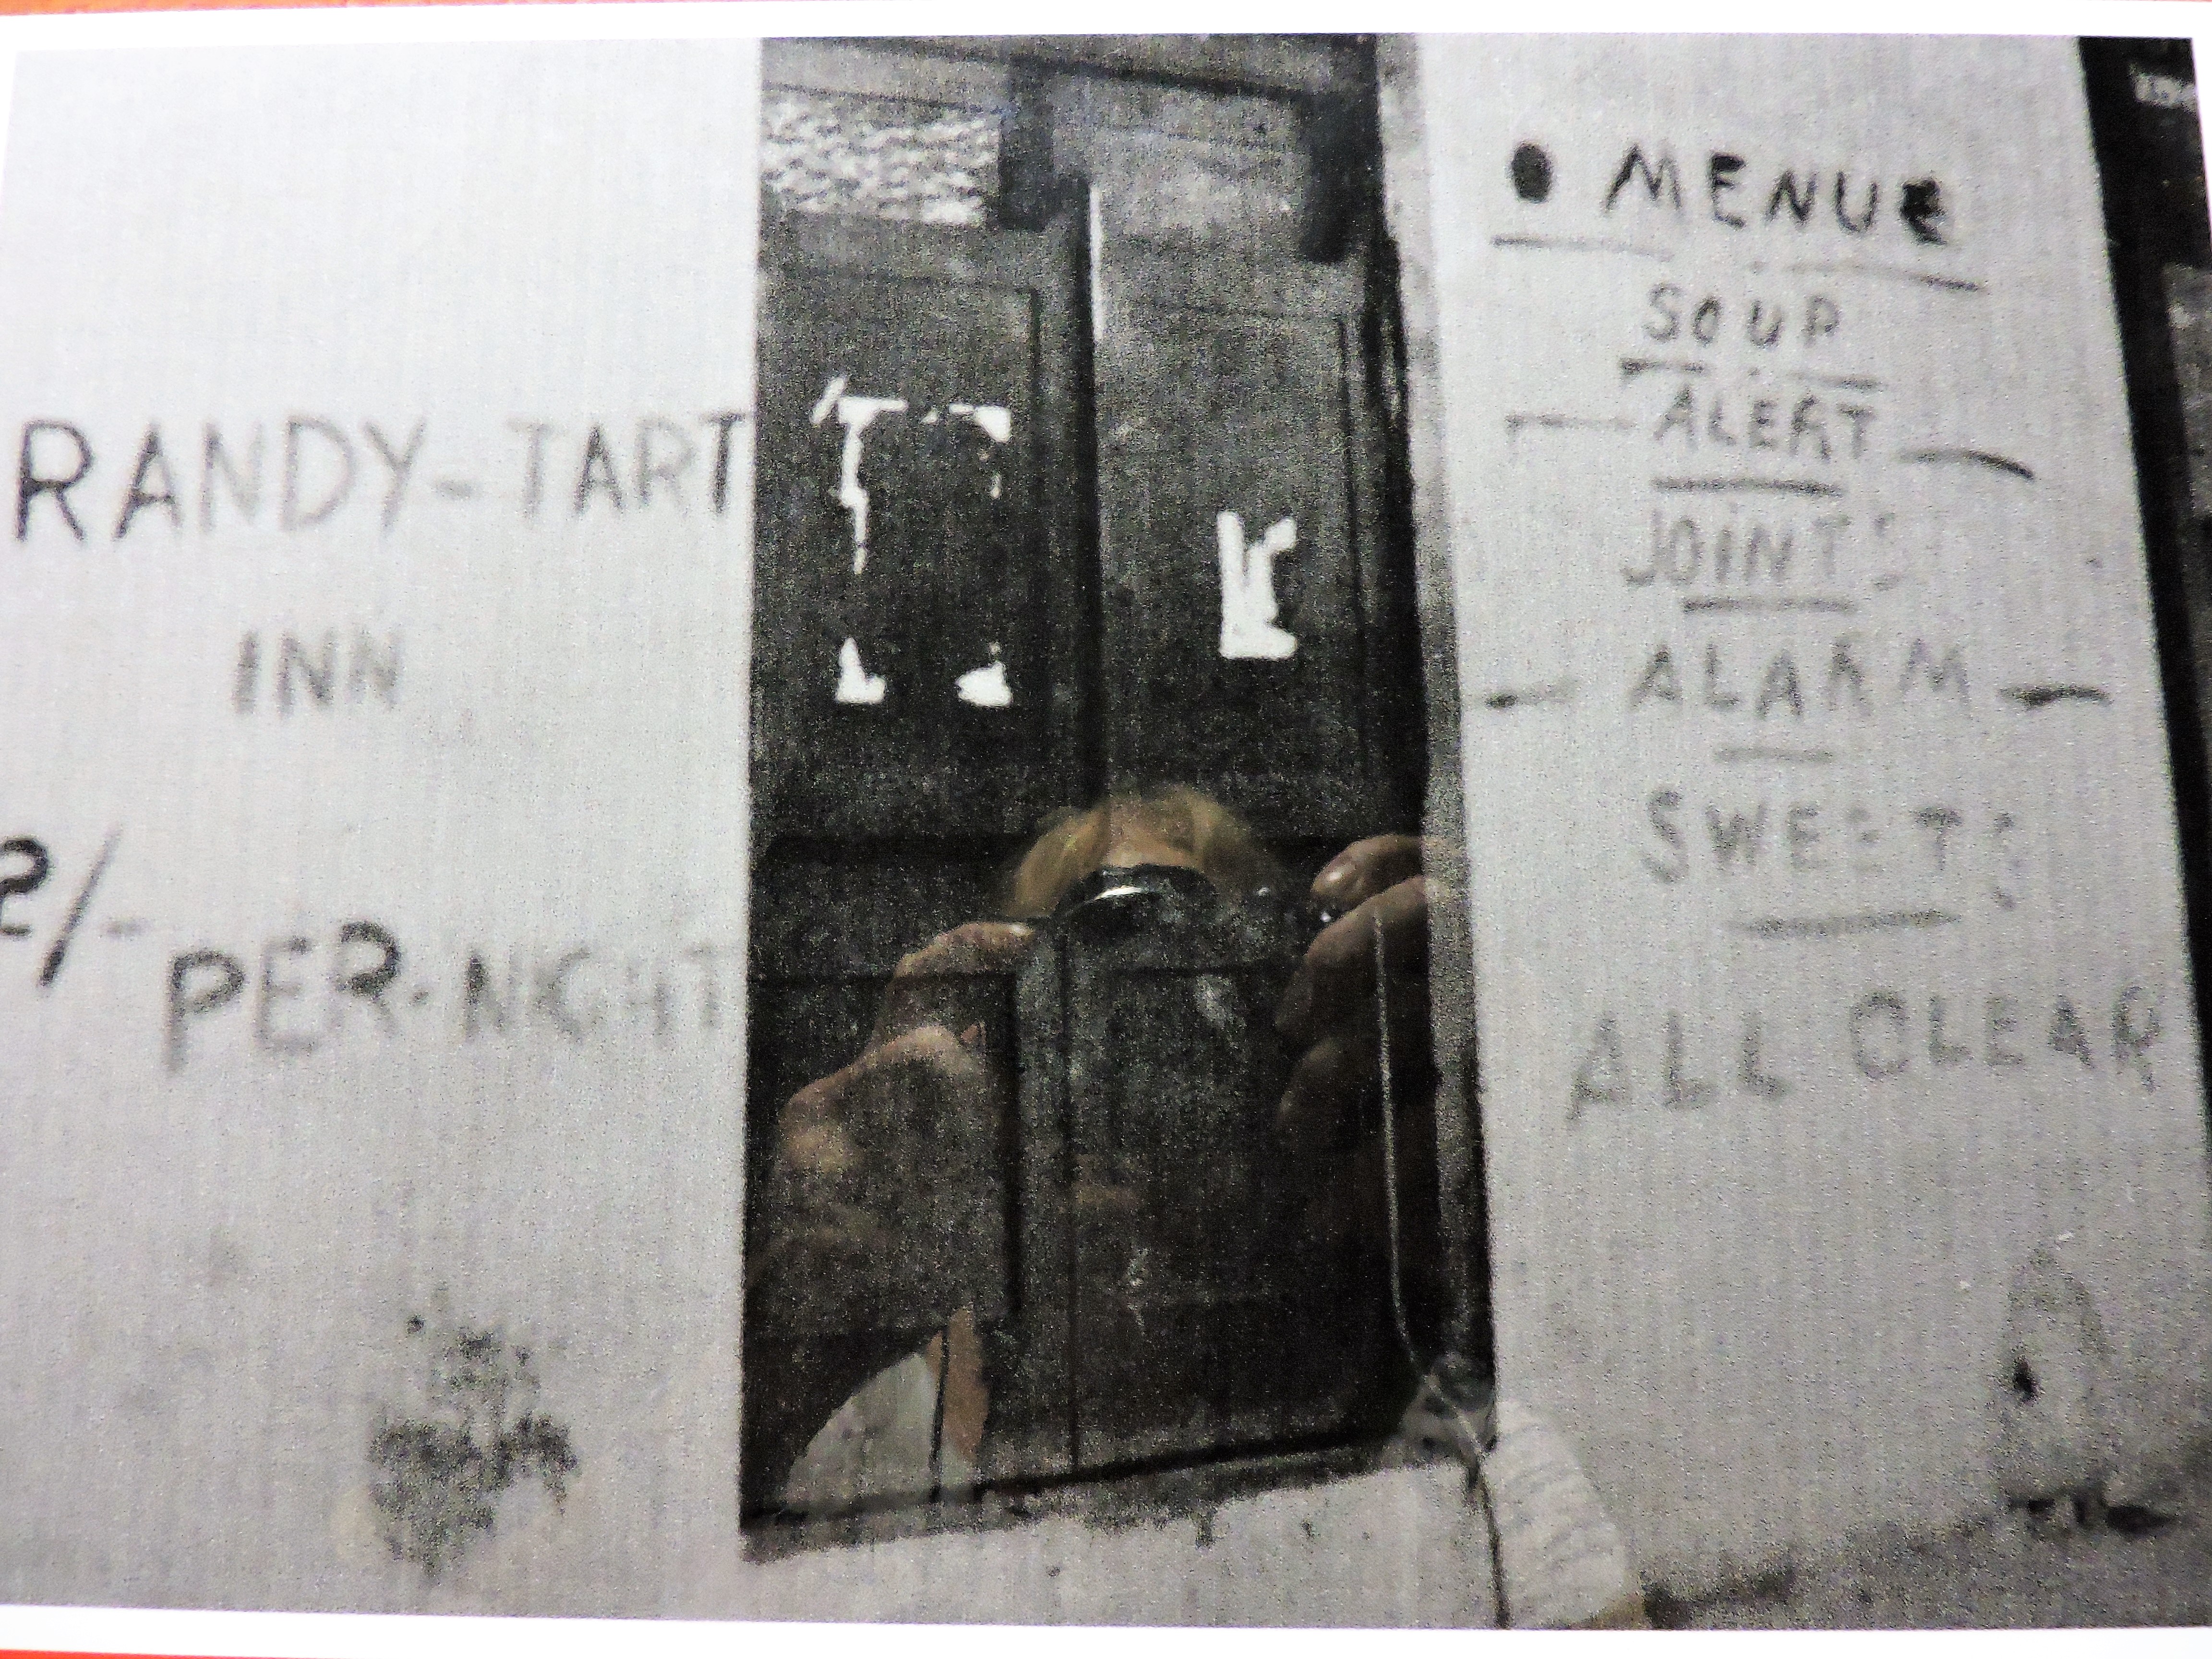 RANDY-TART
INN
2/-
PER·NIGHT
• MENU •
SOUP
— ALERT —
JOINTS
- ALARM -
SWEETS
ALL CLEAR
A